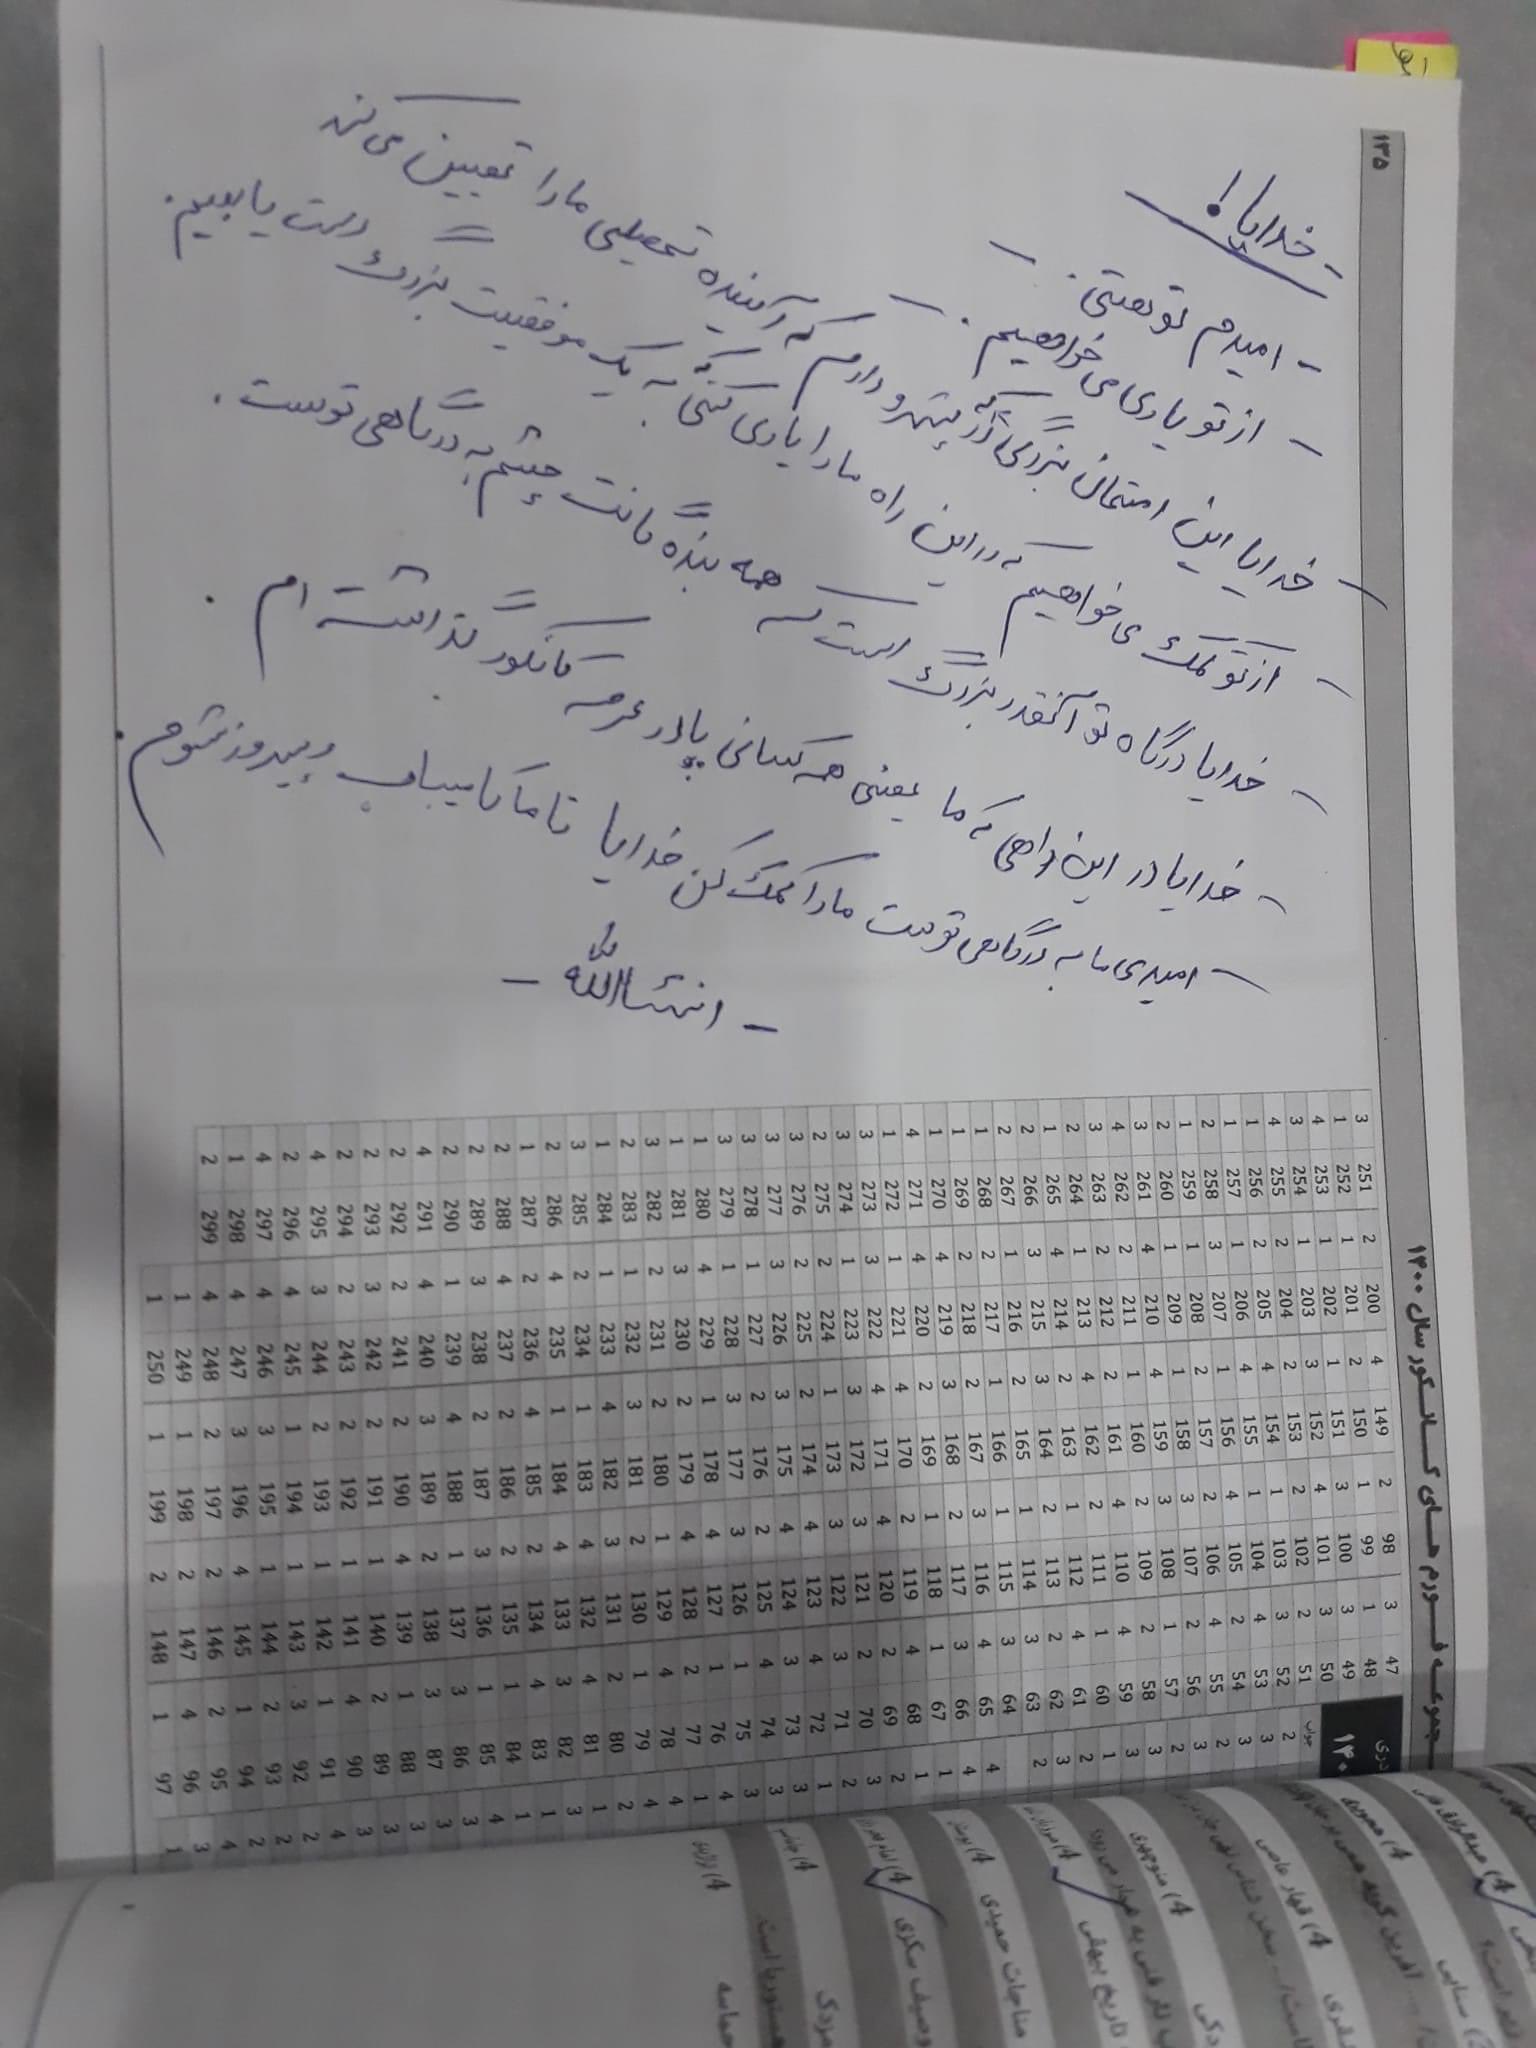 ۱۳۵
مجموعه فورم های کانکور سال ۱۴۰۰
- خدایا!
- امیدم تو هستی.
- از تو یاری می خواهیم.
- خدایا این امتحان بزرگی در پیش رو دارم که آینده تحصیلی ما را تعیین می کند
- از تو کمک می خواهیم که در این راه ما را یاری کنی به یک موفقیت بزرگ دست یابیم.
- خدایا درگاه تو آنقدر بزرگ است که همه بنده گانت چشم به درگاهی توست.
- خدایا در این راهی که ما یعنی همه کسانی پا در عرصه کانکور گذاشته ام.
- امیدی ما به درگاهی توست ما را کمک کن خدایا تا ما کامیاب و پیروز شوم.
- انشاالله -
3 251 2 200 4 149 2 98 3 47
1 252 1 201 2 150 1 99 1 48
4 253 1 202 1 151 3 100 3 49
3 254 1 203 3 152 4 101 3 50
4 255 2 204 2 153 2 102 2 51
1 256 2 205 4 154 1 103 3 52
1 257 1 206 4 155 1 104 4 53
2 258 3 207 1 156 4 105 2 54
1 259 1 208 2 157 2 106 4 55
2 260 1 209 1 158 3 107 2 56
3 261 4 210 4 159 3 108 1 57
4 262 2 211 1 160 2 109 2 58
3 263 2 212 2 161 4 110 4 59
2 264 1 213 4 162 2 111 1 60
1 265 4 214 2 163 1 112 4 61
2 266 3 215 3 164 2 113 2 62
2 267 1 216 2 165 1 114 3 63
1 268 2 217 1 166 1 115 3 64
1 269 2 218 2 167 3 116 4 65
1 270 4 219 3 168 2 117 3 66
4 271 4 220 2 169 1 118 1 67
1 272 1 221 4 170 2 119 4 68
3 273 3 222 4 171 4 120 2 69
3 274 1 223 3 172 3 121 2 70
2 275 2 224 1 173 3 122 3 71
3 276 2 225 2 174 4 123 4 72
3 277 3 226 3 175 4 124 3 73
3 278 1 227 2 176 2 125 4 74
3 279 1 228 3 177 3 126 1 75
1 280 4 229 1 178 4 127 1 76
1 281 3 230 2 179 4 128 2 77
3 282 2 231 2 180 1 129 4 78
2 283 1 232 3 181 2 130 1 79
1 284 1 233 4 182 3 131 2 80
3 285 2 234 1 183 4 132 4 81
2 286 4 235 1 184 4 133 3 82
1 287 2 236 4 185 2 134 4 83
2 288 4 237 2 186 2 135 1 84
2 289 3 238 2 187 3 136 1 85
2 290 1 239 4 188 1 137 3 86
4 291 4 240 3 189 2 138 3 87
2 292 2 241 2 190 4 139 1 88
2 293 3 242 2 191 1 140 2 89
2 294 2 243 2 192 1 141 4 90
4 295 3 244 2 193 1 142 1 91
2 296 4 245 1 194 1 143 3 92
4 297 4 246 3 195 1 144 2 93
1 298 4 247 3 196 4 145 1 94
2 299 4 248 2 197 2 146 2 95
1 249 1 198 2 147 4 96
1 250 1 199 2 148 1 97
جواب
دری
4) قهار عاصی
4) منوچهری
تاریخ بیهقی
مناجات حمیدی
مزدک
حماسه